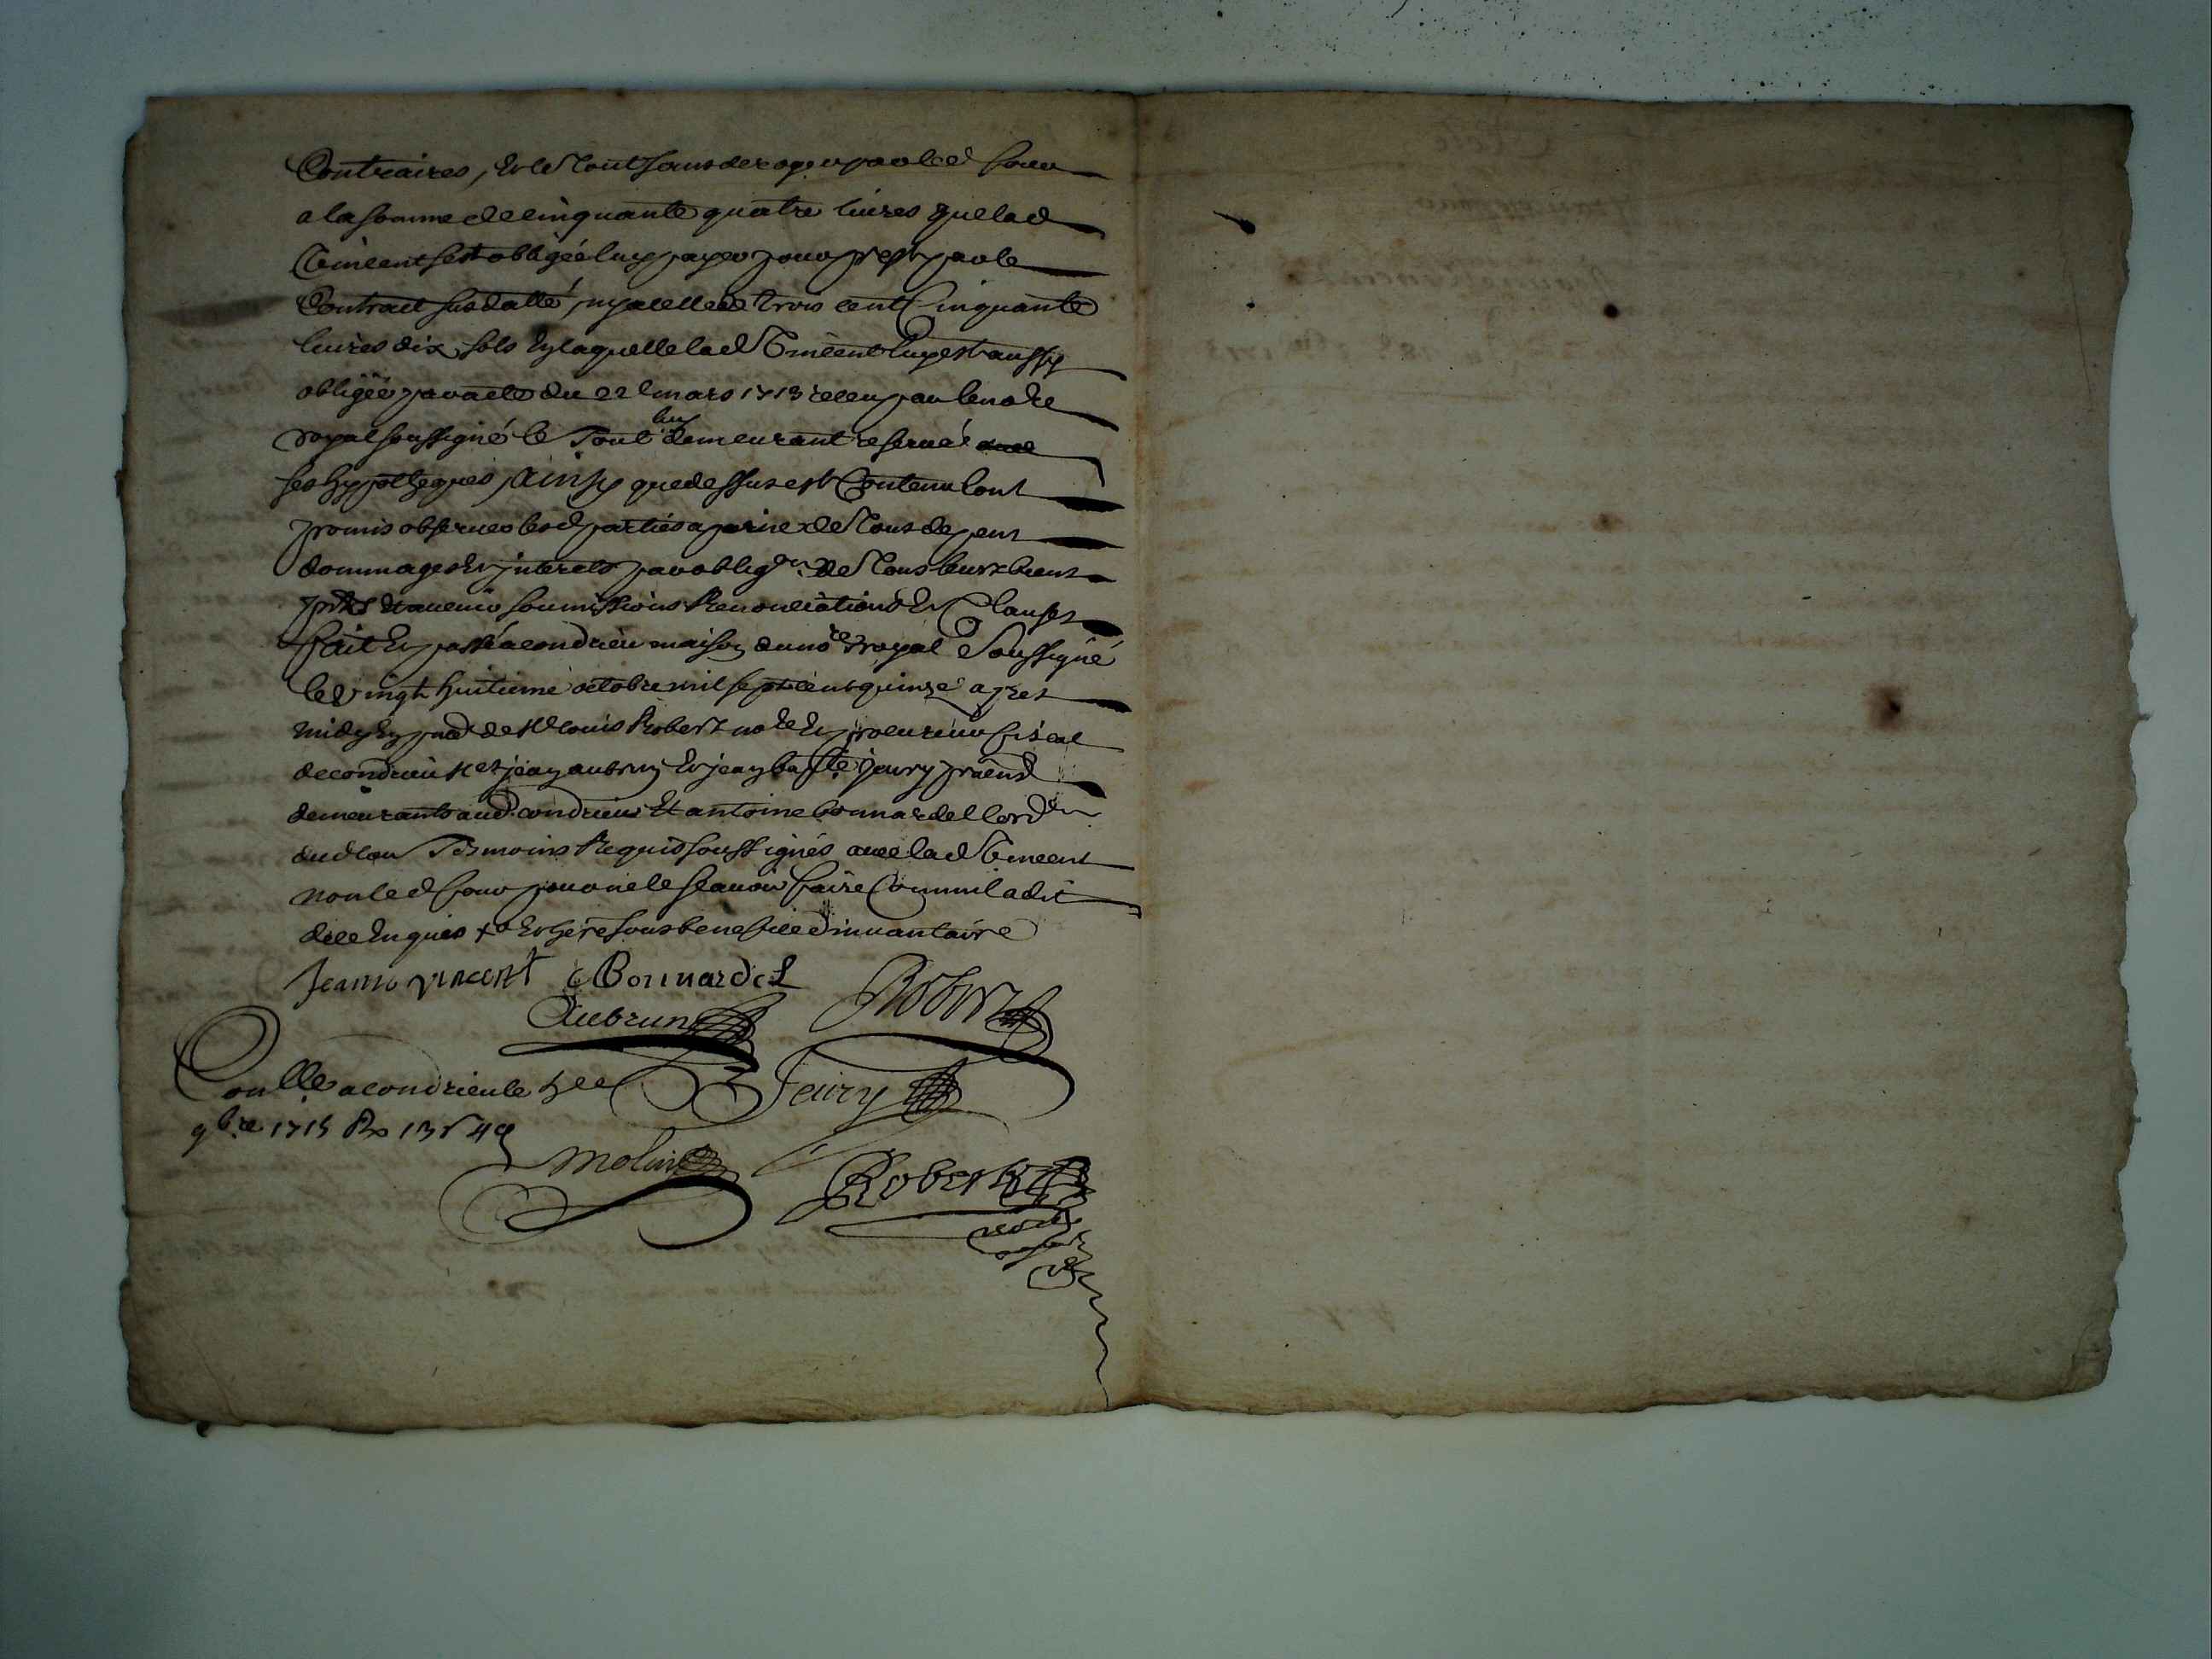 Contraires, Et le Tout sans deroger par led four
a la somme de cinquante quatre livres que lad
Vincent sest obligée luy payer pour prest par le
Contract susdatté, ny a celle de trois cent Cinquante
livres dix sols En laquelle lad Vincent luy est aussy
obligée par acte du 22e mars 1713 receu par le no.re
royal soussigné le Tout luy demeurant reservé avec
ses hypotheques, Ainsy que dessus est Contenu lont
promis observer lesd parties a peine de Tous depens
dommages Et interets par oblig.on de Tous leurs biens
pnts Et avenir soumissions Renonciations Et Clauses
fait Et passé a condrieu maison du no.re royal Soussigné
le Vingt huitieme octobre mil sept cent quinze apres
midy En pnce de Me louis Robert no.re Et procureur fiscal
de condrieu Me jean aubrun Et jean bapte jeury praticiens
demeurants aud. condrieu Et antoine bonnardel
dud lieu Tesmoins Requis soussignés avec lad Vincent
non led four pour ne le scavoir faire Comme il a dit
de ce Enquis Et here sous benefice dinvantaire
Jeanne vincent Bonnardel
Aubrun Robert
Conlle a condrieu le
9bre 1715 Rx 13 s 4 d
Jeury
Molin
Robert